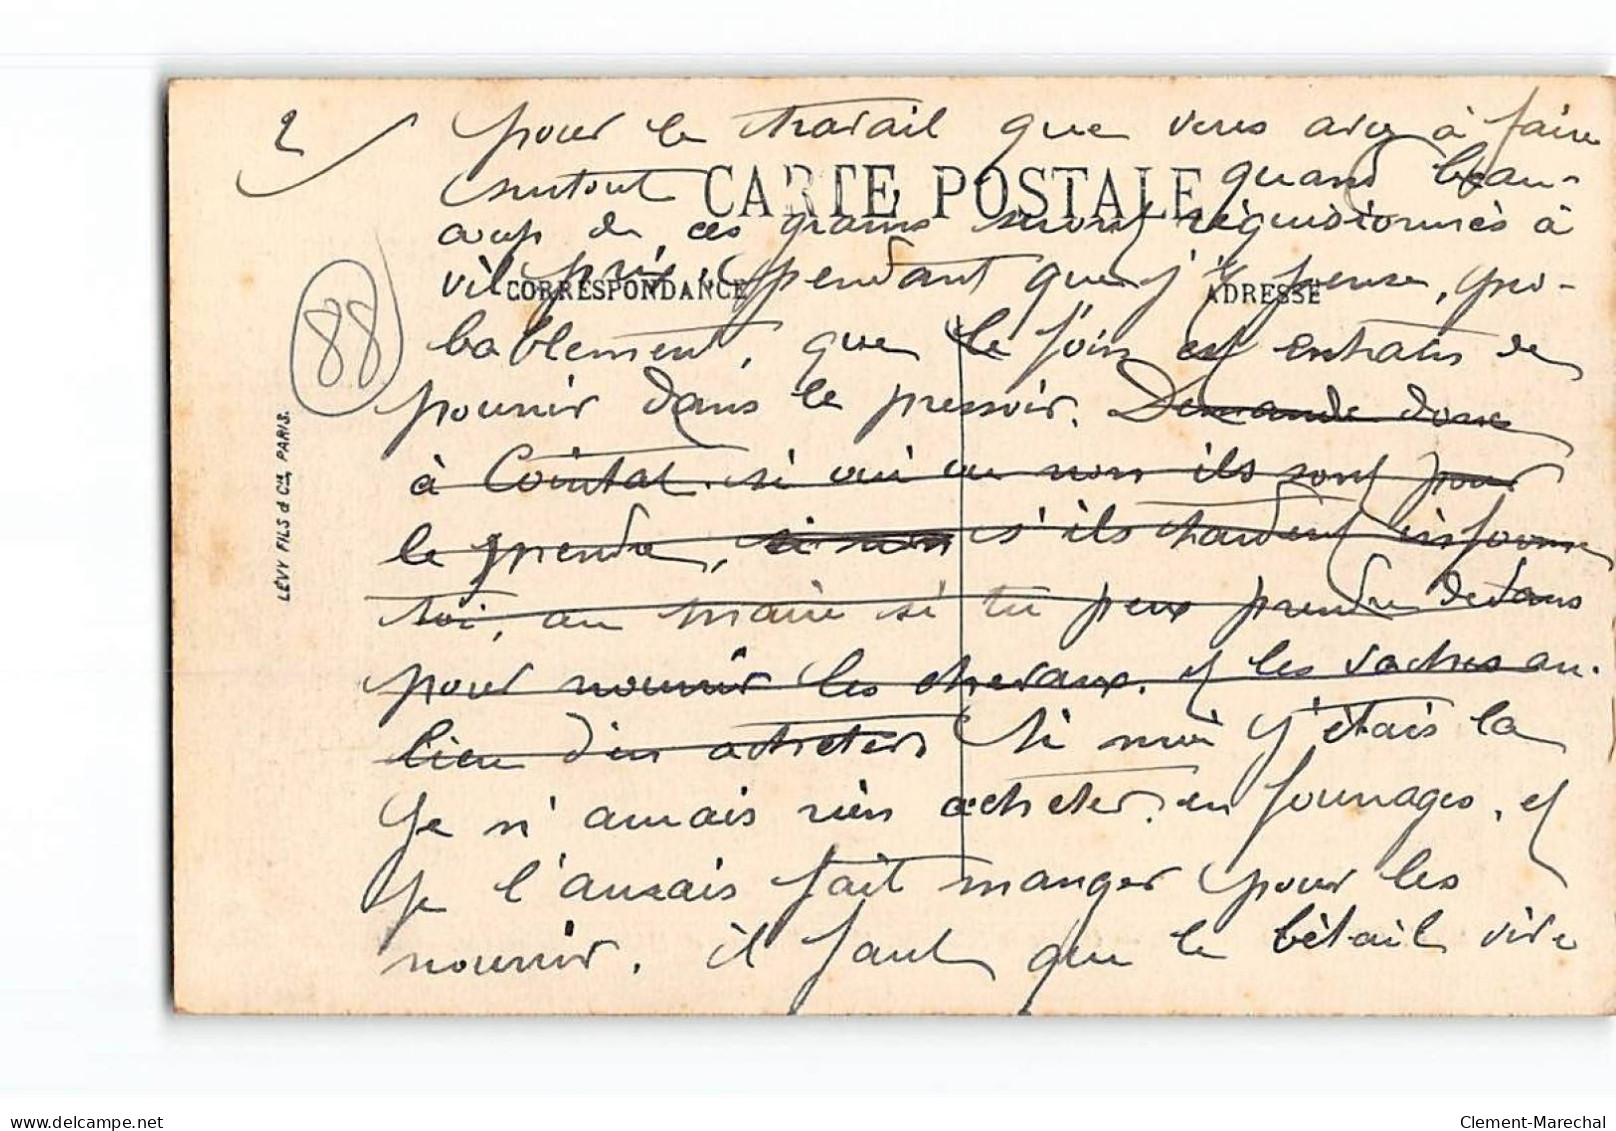 2
pour le travail que vous avez à faire
surtout CARTE POSTALE quand beau-
coup de ces grains seront réquisitionnés à
vil prix, cependant que j'y pense, pro-
CORRESPONDANCE ADRESSE
bablement, que le foin est entrain de
88
pourrir dans le pressoir. Demande donc
à Cointat. si oui ou non ils sont pour
le prendre, si non s'ils tardent informe
toi, au maire si tu peux prendre dedans
pour nourrir les chevaux. et les vaches au.
lieu d'en acheter. Si moi j'étais la
Je n'aurais rien acheter. en fourrages, et
je l'aurais fait manger pour les
nourrir. il faut que le bétail vive
LÉVY FILS & Cie, PARIS.
delcampe.net
Clement-Marechal